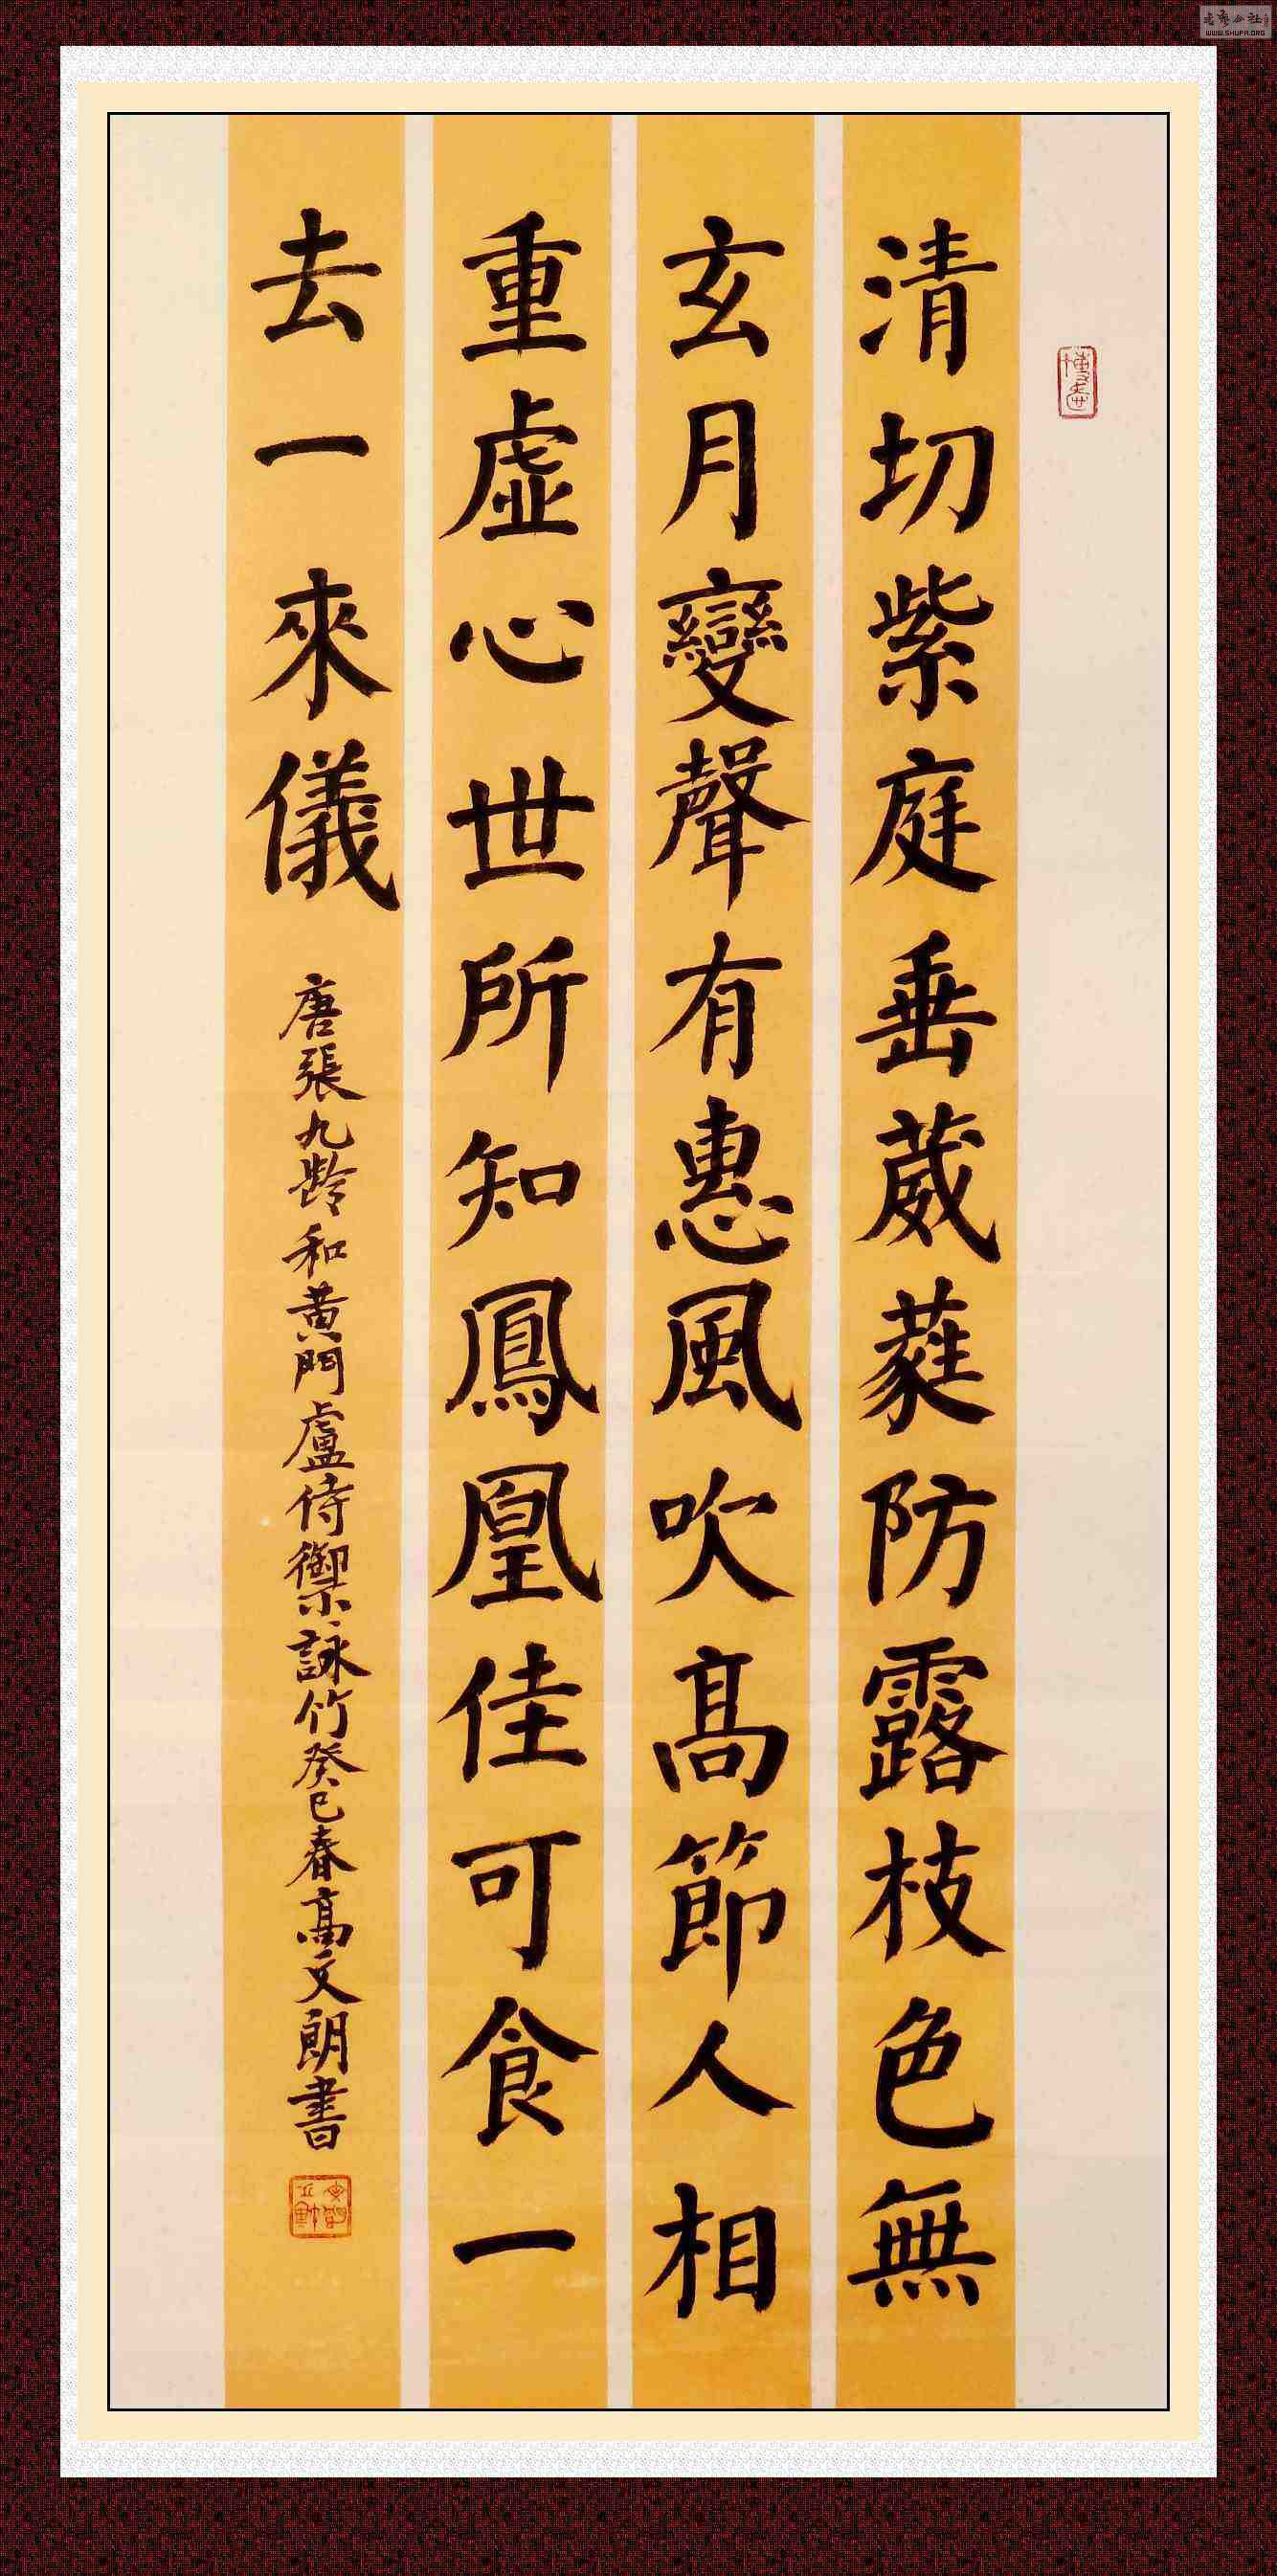 清切紫庭垂葳蕤防露枝色無
玄月變聲有惠風吹高節人相
重虛心世所知鳳凰佳可食一
去一來儀
唐張九齡和黃門盧侍御詠竹癸巳春高文朗書
WWW.SHUFA.ORG